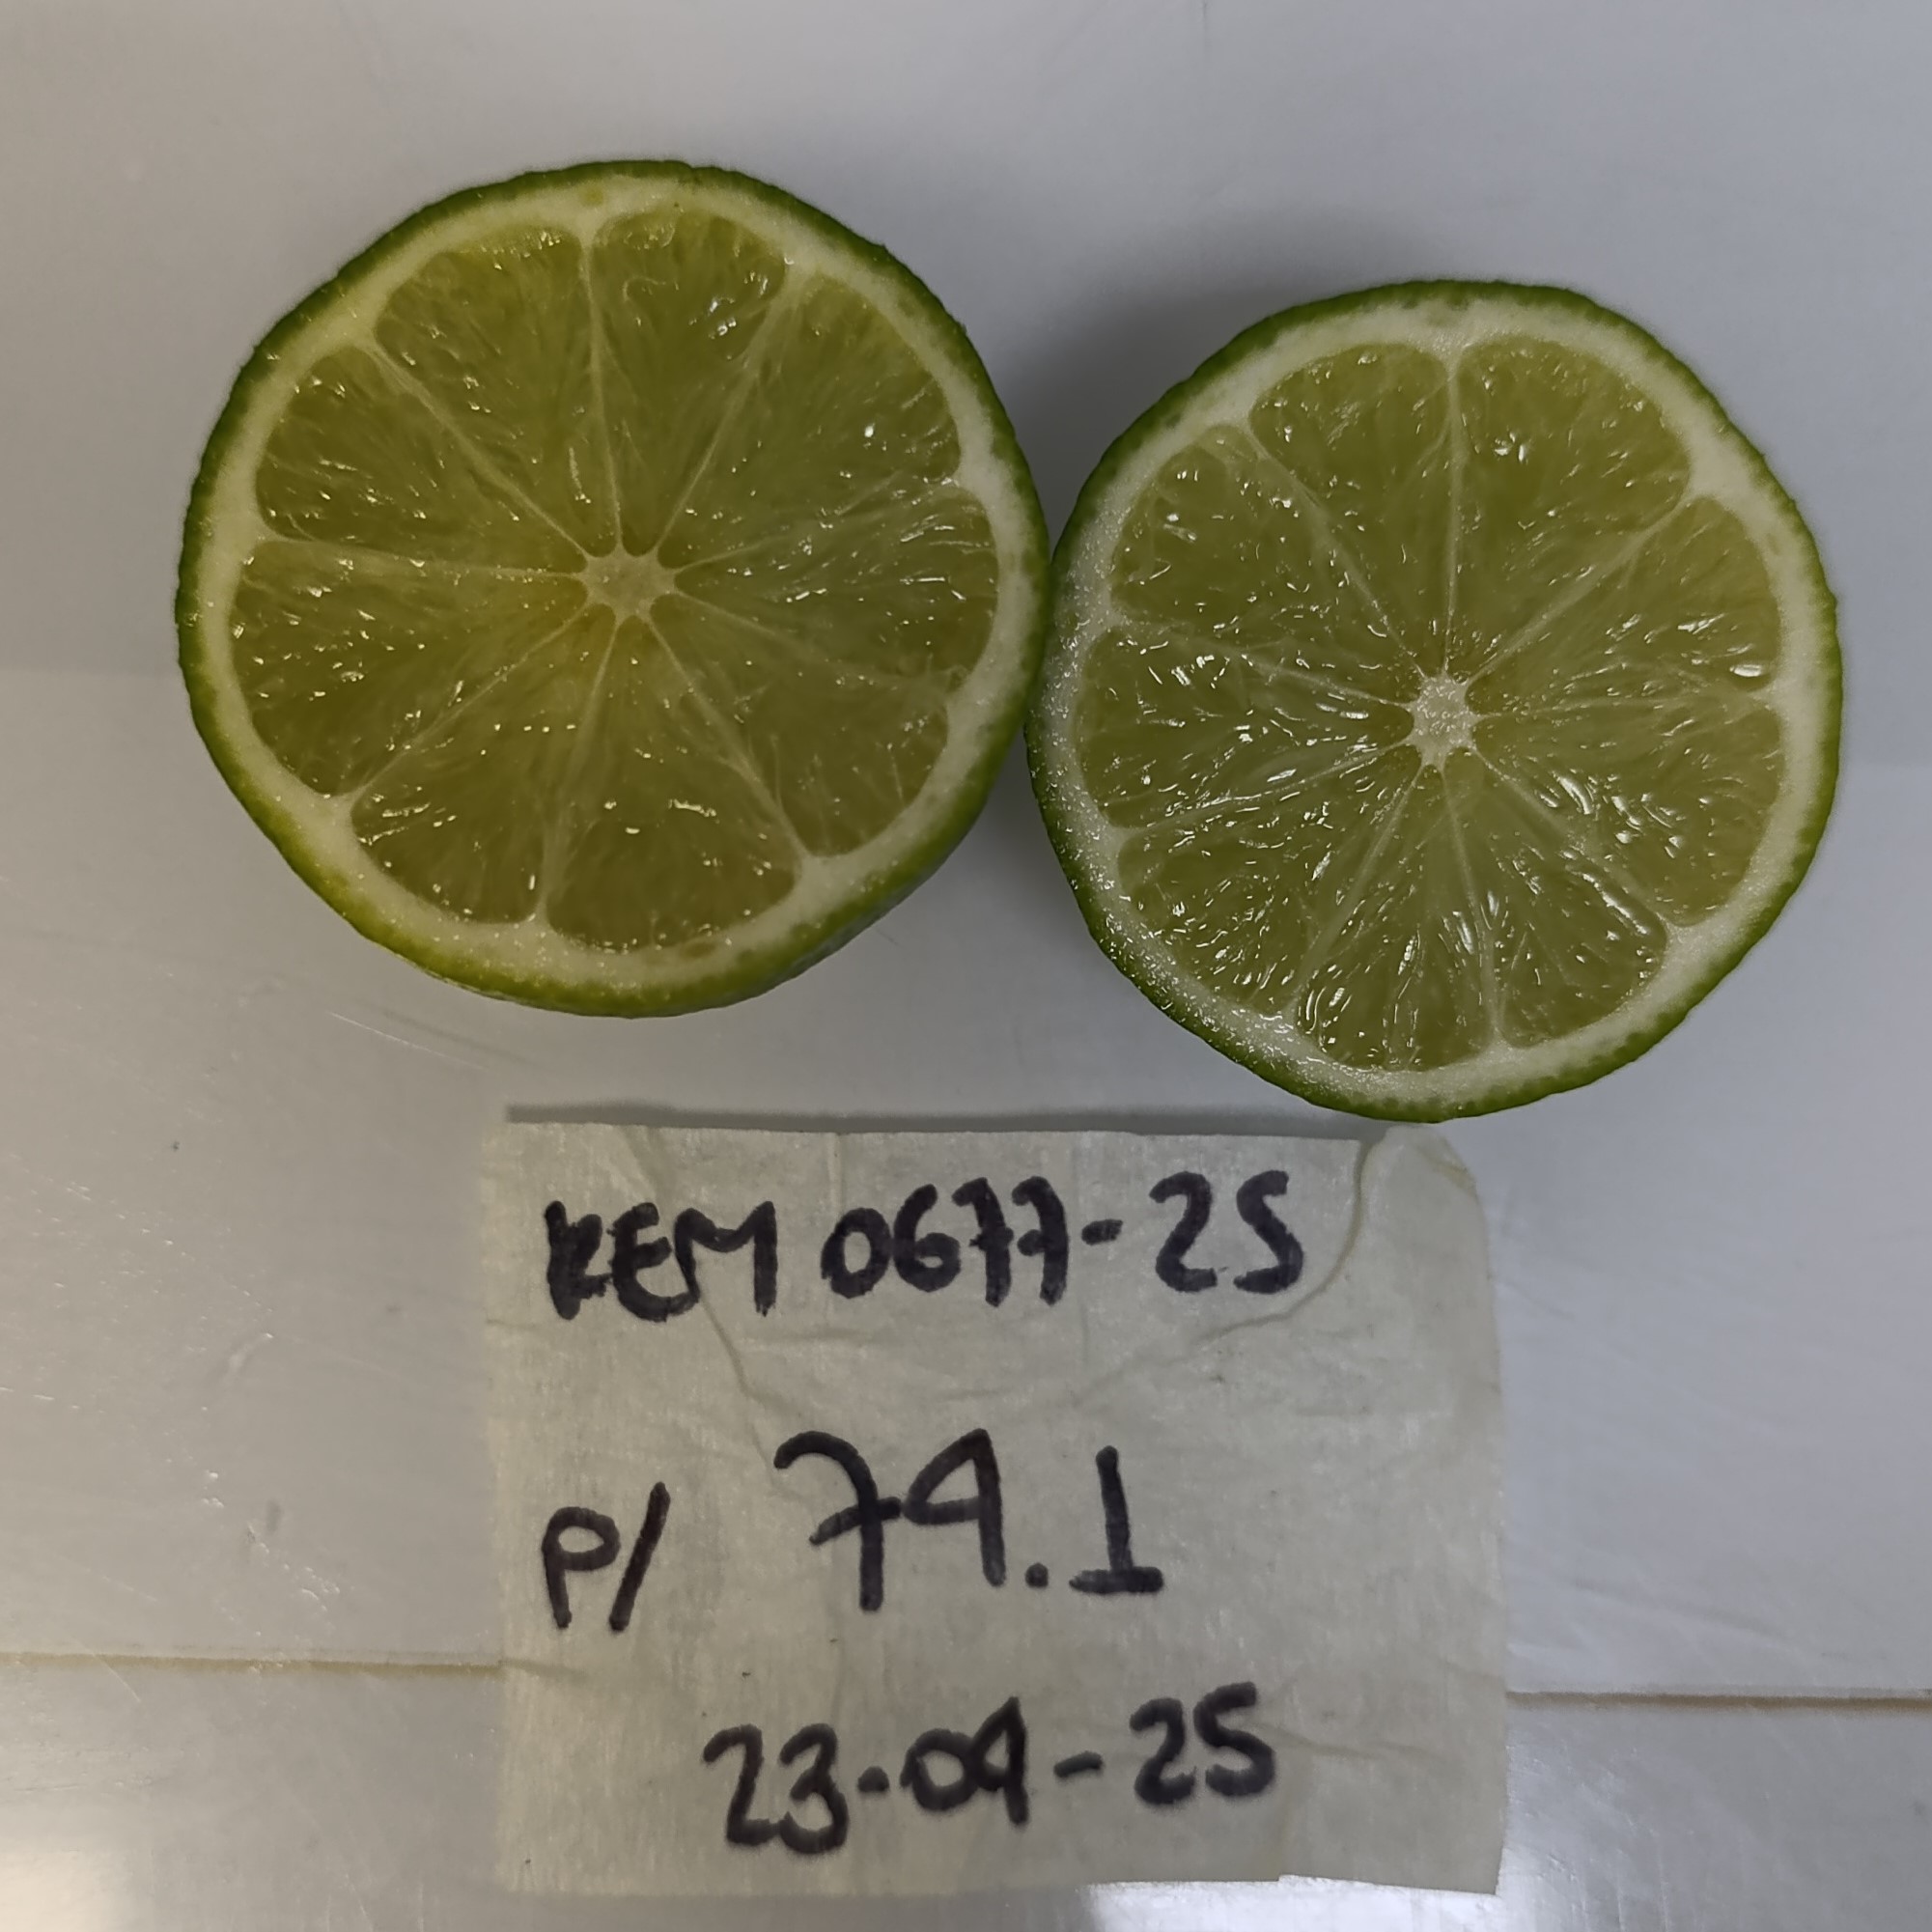 REM 0677-25
P/ 74.1
23-04-25